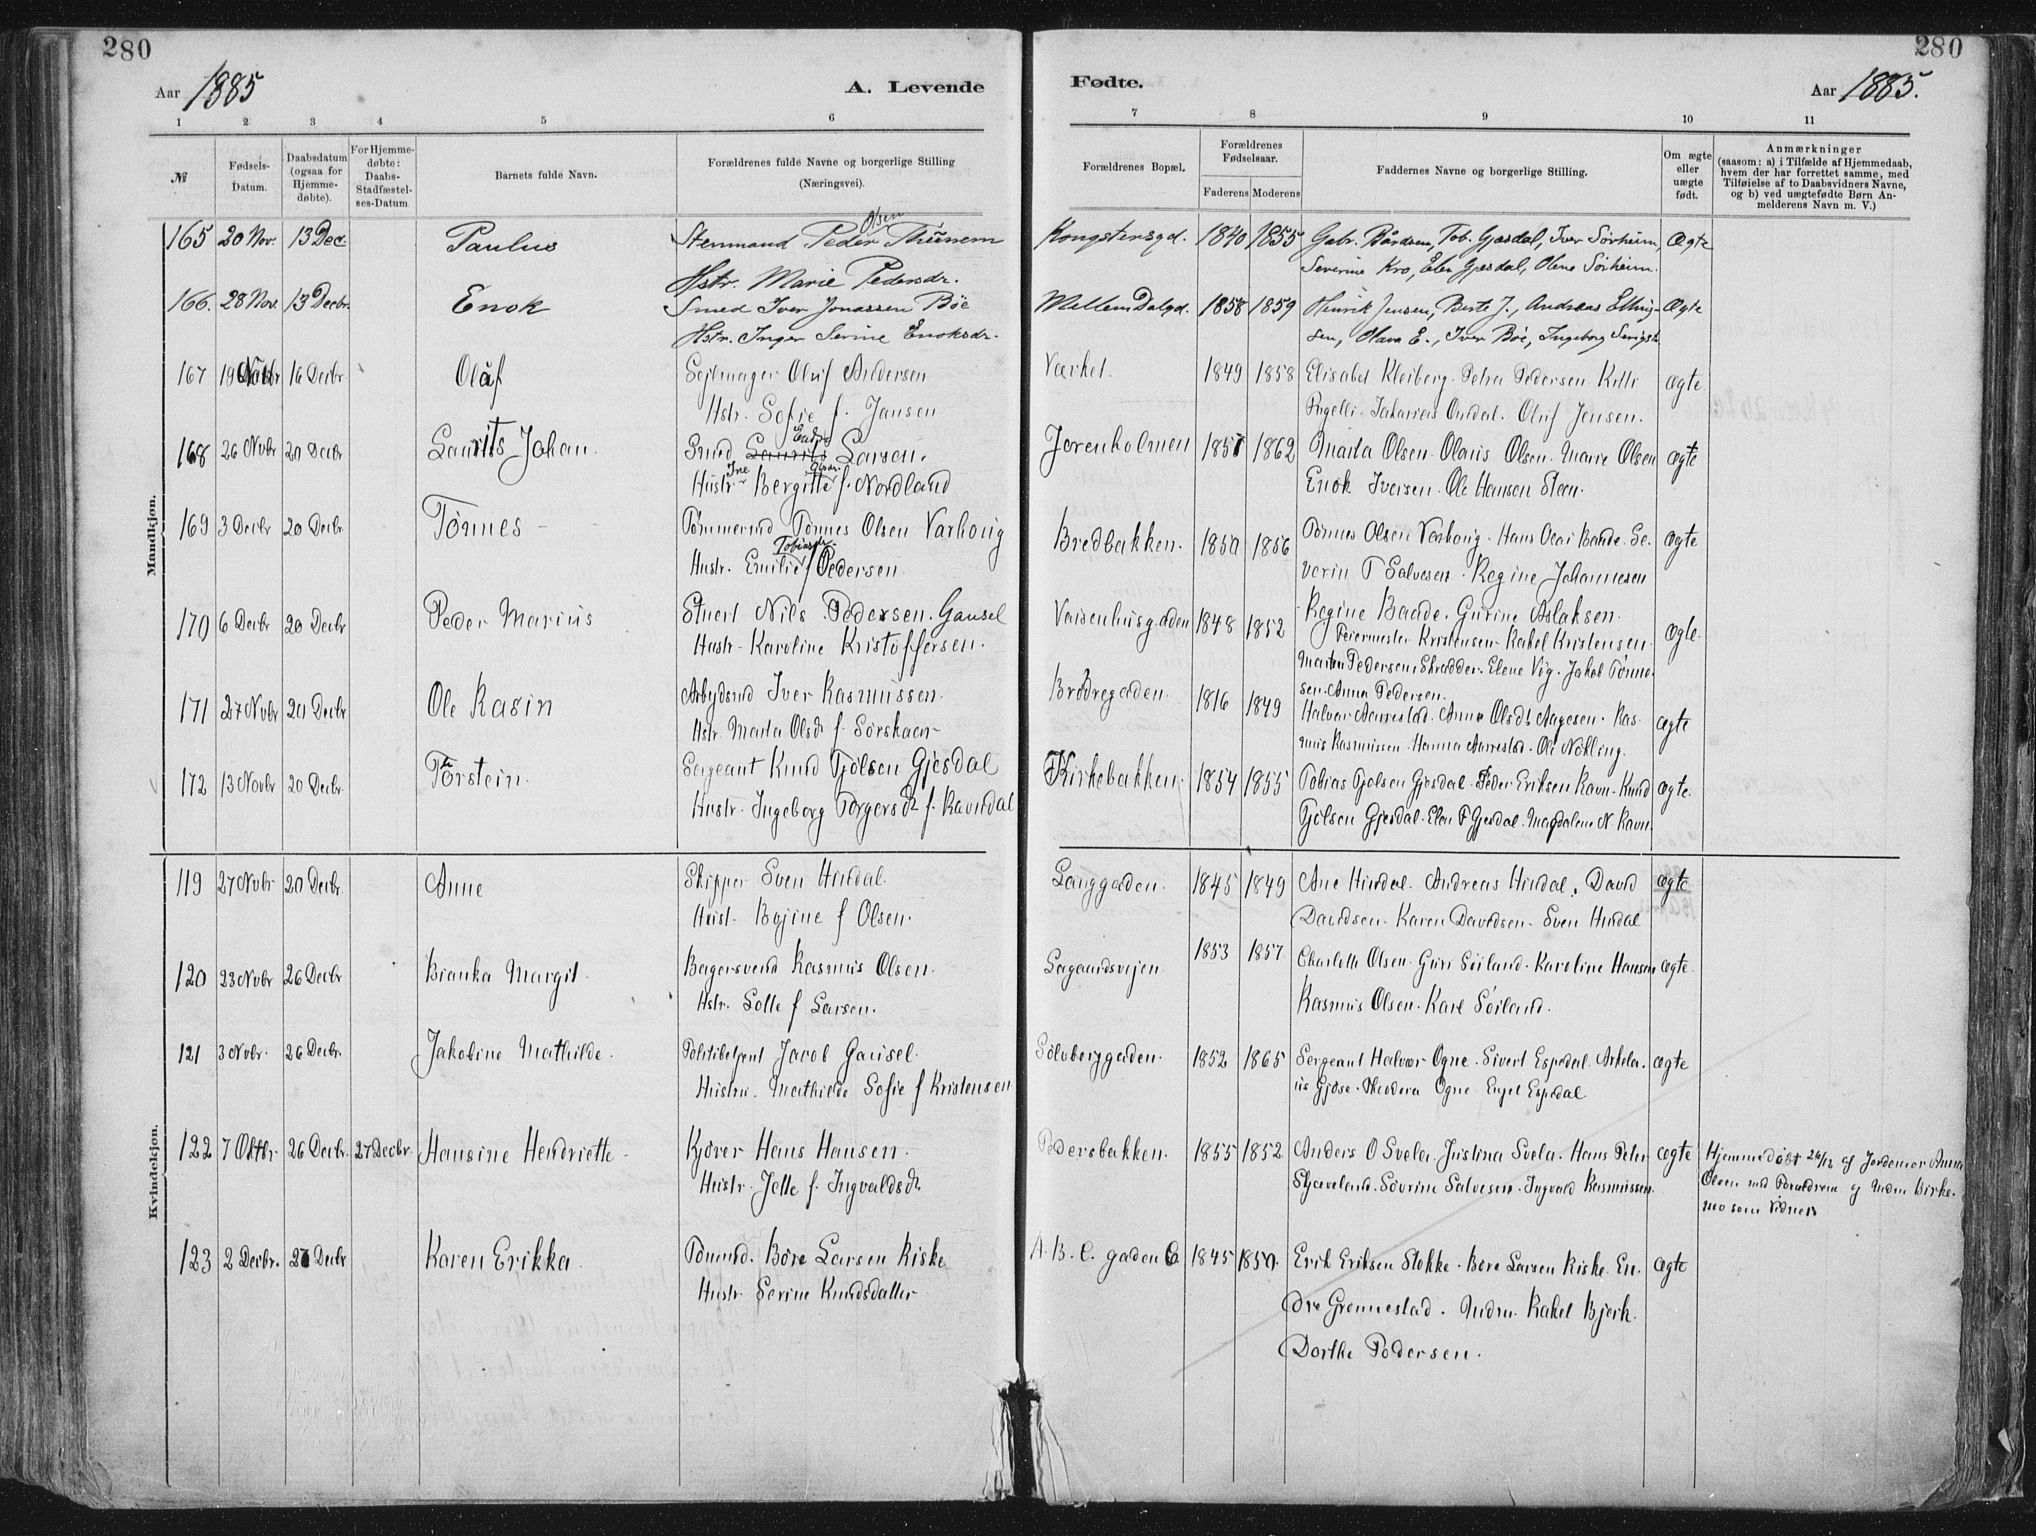 280
280
Aar 1885
A. Levende
Fødte.
Aar 1885.
1 2 3 4 5 6 7 8 9 10 11
№
Fødsels-Datum.
Daabsdatum (ogsaa for Hjemmedøbte).
For Hjemmedøbte: Daabs-Stadfæstelses-Datum.
Barnets fulde Navn.
Forældrenes fulde Navne og borgerlige Stilling
(Næringsvei).
Forældrenes Bopæl.
Forældrenes Fødselsaar.
Faderens Moderens
Faddernes Navne og borgerlige Stilling.
Om ægte eller uægte født.
Anmærkninger
(saasom: a) i Tilfælde af Hjemmedaab,
hvem der har forrettet samme, med
Tilføielse af to Daabsvidners Navne,
og b) ved uægtefødte Børn An-
melderens Navn m. V.)
Mandkjøn.
165 20 Nov. 13 Dec. Paulus Stenmand Peder Olsen Thunem Kongstensgd. 1840 1855 Gabr. Bårdsen, Tob. Gjesdal, Iver Sørheim, Ægte
Hstr. Marie Pedersdr. Severine Kro, Elen Gjesdal, Olene Sørheim.
166. 28 Nov. 13 Decbr. Enok Smed Iver Jonassen Bøe Mellem Dalgd. 1858 1859 Henrik Jensen, Berte J., Andreas Elling- Ægte
Hstr. Inger Serine Enoksdr. sen, Olava E., Iver Bøe, Ingeborg
167 19 Novbr 16 Decbr Olaf Sejlmager Oluf Andersen Værket. 1849 1858 Elisabet Kleiberg. Petra Pedersen ægte
Hstr. Sofie f. Jansen Oluf Jensen.
168 26 Novbr 20 Decbr Laurits Johan. Smed Larsen. Jorenholmen 1857 1862 Marta Olsen. Olaus Olsen. Marie Olsen ægte
Hustr. Ine Bergitte Olsdr. f. Nordland Enok Iversen. Ole Hansen Steen.
169 3 Decbr 20 Decbr. Tønnes Tømmermd Tønnes Olsen Varhoug Bredbakken. 1850 1856 Tønnes Olsen Varhoug. Hans Olai Baade. Se- ægte
Hustr. Emilie Tobiasdr. f Pedersen. verin T Salvesen. Regine Johannesen
170 6 Decbr 20 Decbr Peder Marius Stuert Nils Pedersen. Gausel Vaisenhusgaden 1848 1852 Regine Baade. Gurine Aslaksen. ægte.
Hustr. Karoline Kristoffersen. Feiermester Kristensen. Rakel Kristensen
171 27 Novbr 20 Decbr Ole Kasin Arbejdsmd Iver Rasmussen. Brødregaden. 1816 1849 Pedersen Skrædder. Elene Vig. Jakob Tønne-
sen. Anna Pedersen.
Hstr. Marta Olsdr f. Sørskaar Halvar Aarrestad. Anne Olsdtr Aagesen. Ras- ægte
mus Rasmussen. Hanna Aarrestad. Ole Nødling.
172 13 Novbr 20 Decbr Torstein. Sergeant Knud Tjølsen Gjesdal Kirkebakken. 1854 1855 Tobias Tjølsen Gjesdal. Peder Eriksen Ravn. Knud ægte.
Hustr. Ingeborg Torgersdr f. Ravndal Tjølsen Gjesdal. Elen T Gjesdal. Magdalene N Ravn.
Kvindekjøn.
119 27 Novbr 20 Decbr. Anne Skipper Sven Hindal Langgaden. 1845 1849 Ane Hindal. Andreas Hindal. David ægte.
Hust. Bojine f Olsen. Davidsen. Karen Davidsen. Sven Hindal
120 23 Novbr 26 Decbr Bianka Margit. Bagersvend Rasmus Olsen. Lagaardsvejen. 1853 1857 Charlotte Olsen. Guri Søiland. Karoline Hansen ægte.
Hstr. Lotte f Larsen. Rasmus Olsen. Karl Søiland.
121 3 Novbr. 26 Decbr. Jakobine Mathilde. Politibetjent Jacob Gausel. Sølvberggaden. 1852 1865 Sergeant Halvar Ogne. Sivert Espedal. Arkela- ægte
Hustru. Mathilde Sofie f Kristensen us Gjøse. Theodora Ogne. Engel Espedal.
122 7 Oktbr. 26 Decbr. 27 Decbr. Hansine Hendriette Kjører Hans Hansen. Pedersbakken. 1855 1852 Anders O Svela. Justina Svela. Hans Peter ægte Hjemmedøbt 26/12 af Jordemor Anna
Hustr. Jette f. Ingvaldsdr Skjæveland. Søvrine Salvesen. Ingvald Rasmussen. Olsen med Forældrene og Mdm Birke-
mo som Vidner
123 2 Decbr. 27 Decbr Karen Erikka. Tømmd. Børe Larsen Riske A. B. C. gaden 6 1845 1850. Erik Eriksen Stokke. Børe Larsen Riske. En- ægte
Hustr Serine Knudsdatter dre Grønnestad. Mdm. Rakel Bjerk.
Dorthe Pedersen.